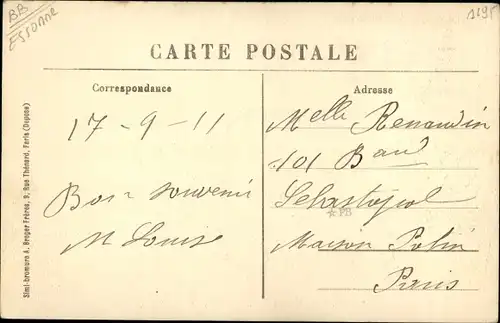 BB
ESSONNE
1195
CARTE POSTALE
Correspondance
Adresse
17-9-11
Bon souvenir
M Louise
Melle Renaudin
101 Bard
Sebastopol
PB
Maison Potin
Paris
Simi-bromure A. Breger Frères, 9, Rue Thénard, Paris (Déposé)